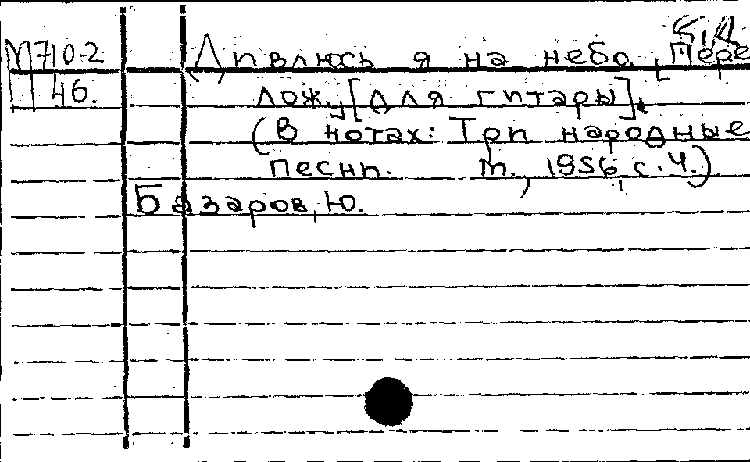 М710-2
П46.
Дивлюсь я на небо. Пере
лож. [для гитары].
(В нотах: Три народные
песни. М., 1956, с. 4.)
Базаров, Ю.